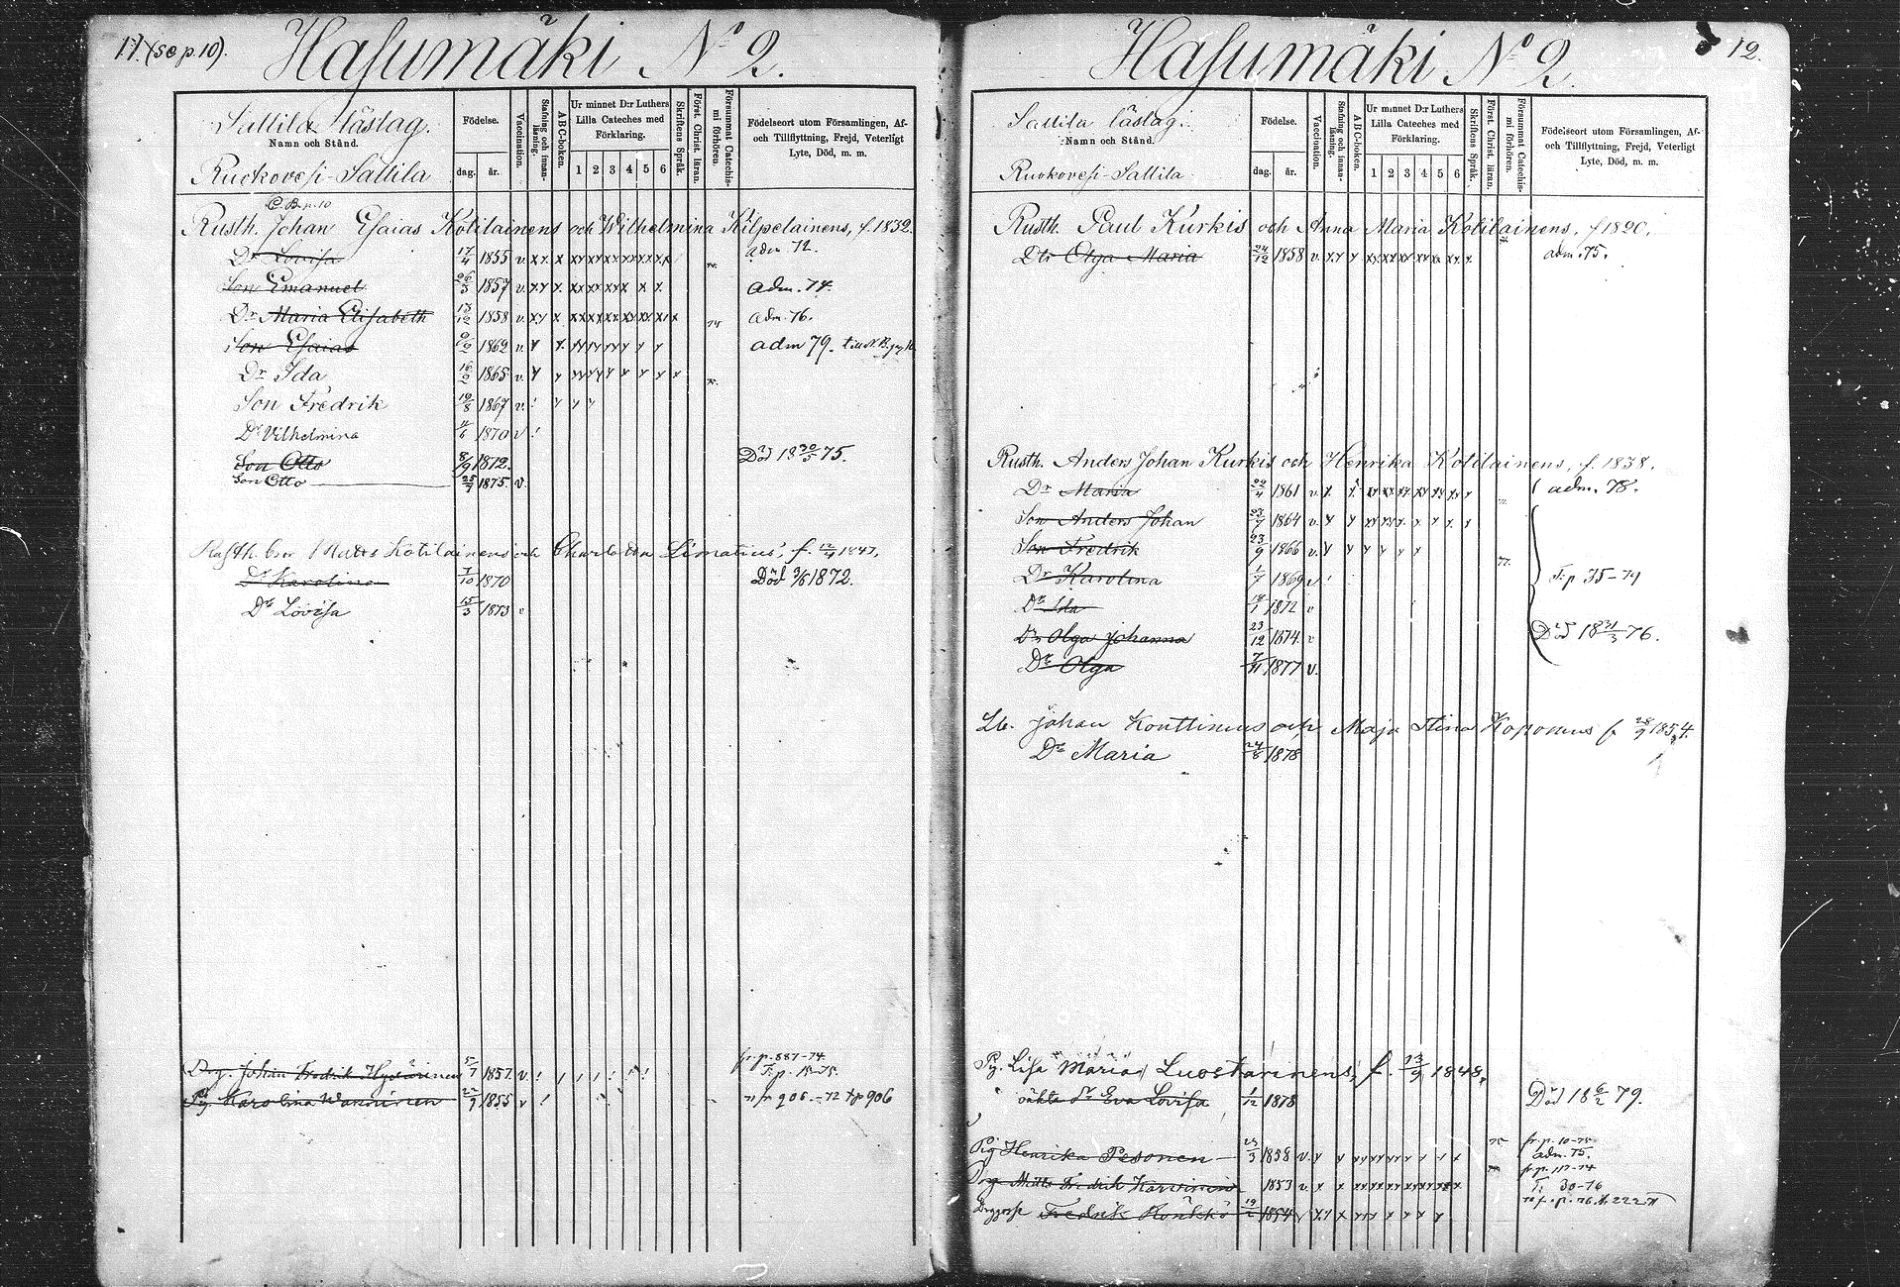 17. (se p. 10).
Hasumäki No 2.
Sallila läslag.
Namn och Stånd.
Ruokovesi-Sallila
Födelse.
dag. år.
Vaccination.
Stafning och innanläsning.
ABC-boken.
Ur minnet D:r Luthers Lilla Cateches med Förklaring.
1 2 3 4 5 6
Skriftens Språk.
Först. Christ. läran.
Försummat Catechismi förhören.
Födelseort utom Församlingen, Af- och Tillflyttning, Frejd, Veterligt Lyte, Död, m. m.
C. B. p. 10
Rusth. Johan Esaias Kotilainens och Wilhelmina Kilpelainens, f. 1832.
Dr Lovisa 17/4 1855 v. adm. 72.
Son Emanuel 26/3 1857 v. adm. 74.
Dr Maria Elisabeth 13/12 1858 v. adm. 76.
Son Esaias 9/2 1862 v. adm 79.
Dr Ida 16/2 1865 v.
Son Fredrik 19/8 1867 v.
Dr Vilhelmina 11/6 1870 v
Son Otto 8/9 1872. Död 18 30/5 75.
Son Otto 25/7 1875. v.
Rusth. bror Matts Kotilainens och Charlotta Limatius, f. 12/4 1847.
Dr Karolina 7/10 1870 Död 3/6 1872.
Dr Lovisa 15/3 1873 v
Drg. Johan Fredrik Hyvärinen 5/7 1857. v. fr. p. 887-74 T. p. 18-75.
Pg. Karolina Wänninen 27/9 1855 v 906.-72 t p 906
12.
Hasumäki No 2.
Sallila läslag.
Namn och Stånd.
Ruokovesi-Sallila
Födelse.
dag. år.
Vaccination.
Stafning och innanläsning.
ABC-boken.
Ur minnet D:r Luthers Lilla Cateches med Förklaring.
1 2 3 4 5 6
Skriftens Språk.
Först. Christ. läran.
Försummat Catechismi förhören.
Födelseort utom Församlingen, Af- och Tillflyttning, Frejd, Veterligt Lyte, Död, m. m.
Rusth. Paul Kurkis och Anna Maria Kotilainens, f 1820.
Dtr Olga Maria 24/12 1858 v. adm. 75.
Rusth. Anders Johan Kurkis och Henrika Kotilainens, f. 1838.
Dr Maria 22/4 1861 v. adm. 78.
Son Anders Johan 23/7 1864 v.
Son Fredrik 23/9 1866 v.
Dr Karolina 1/7 1869 v T. p 35-79
Dr Ida 18/1 1872 v
Dr Olga Johanna 23/12 1874 v Död 18 31/3 76.
Dr Olga 7/11 1877 v.
Lb. Johan Konttinens och Maja Stina Koponens f. 28/9 1854.
Dr Maria 24/6 1878
Pg. Lisa Maria Luostarinens, f. 23/9 1848.
oäkta dr Eva Lovisa 1/12 1878 Död 18 6/2 79.
Pig Henrika Pesonen 23/3 1858 v. fr. p. 10-75 adm. 75.
Drg Matts Fredrik Karvinen 1853 v. fr. p. 117-74 T. 30-76
Fredrik Honkko 19/2 1854